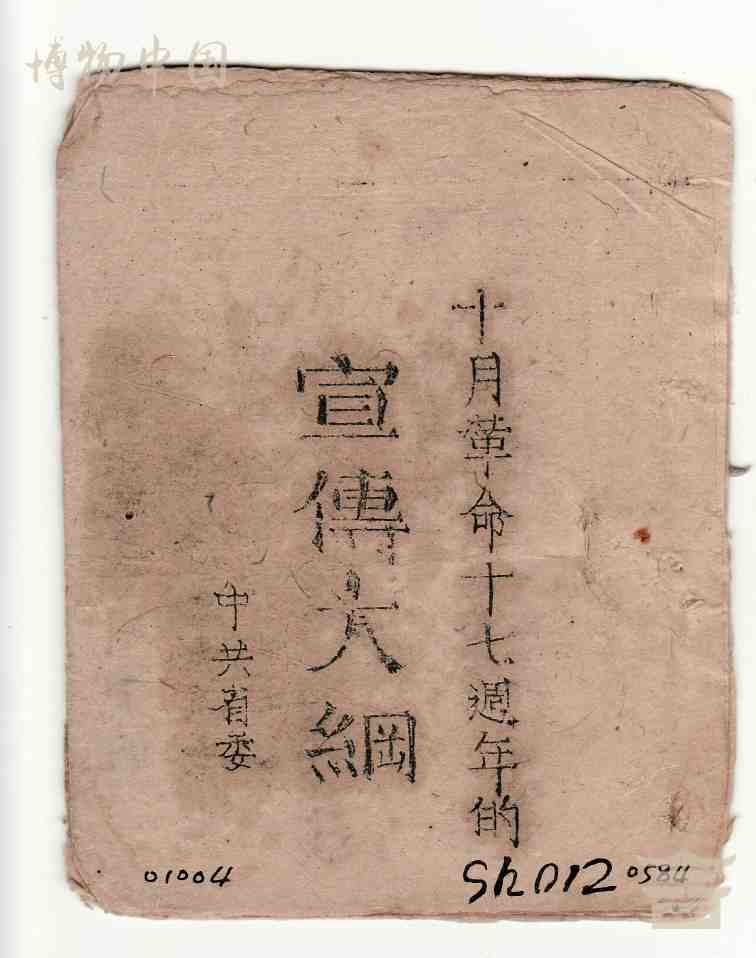 博物中国
十月革命十七週年的
宣傳大綱
中共省委
01004
SH012 0584